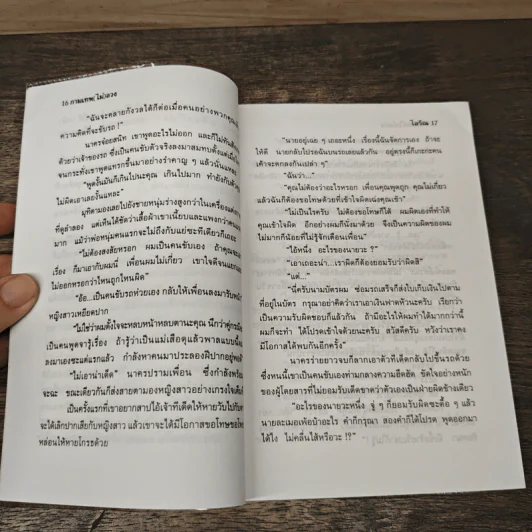 16 กามเทพ(ไม่)ลวง
"ฉันจะคลายกังวลได้ก็ต่อเมื่อคนอย่างพวกคุณ
ความคิดที่จะขับรถ !"
นาครจ๋อยสนิท เขาพูดอะไรไม่ออก และก็ไม่ทัน
ด้วยว่าเจ้าของรถ ซึ่งเป็นคนขับตัวจริงลงมาสมทบตั้งแต่เมื่อ
จนกระทั่งเขาพูดแทรกขึ้นมาอย่างรำคาญ ๆ แล้วนั่นแหละ
"พูดงั้นมันก็เกินไปนะคุณ เกินไปมาก ทำยังกับตัว
ไม่ผิดเอาเลยงั้นแหละ"
มุทิตามองเลยไปยังชายหนุ่มร่างสูงกว่าในเครื่องแต่งกาย
ที่ดูลำลอง แต่เห็นได้ชัดว่าเสื้อผ้าเขาเนี้ยบและแพงกว่าคน
มาก แม้ว่าพ่อหนุ่มคนแรกจะไม่ถึงกับแย่ซะทีเดียวก็เถอะ
"ไม่ต้องสงสัยหรอก ผมเป็นคนขับเอง ถ้าคุณจะ
เรื่อง ก็มาเอากับผมนี่ เพื่อนผมไม่เกี่ยว เขาใจดีจนแยก
ไม่ออกหรอกว่าไหนถูกไหนผิด"
"อ้อ...เป็นคนขับรถห่วยเอง กลับให้เพื่อนลงมารับหน้า
หญิงสาวเหยียดปาก
"ไม่ใช่ว่าผมตั้งใจจะหลบหน้าหลบตานะคุณ นึกว่าคู่กรณี
เป็นคนพูดจารู้เรื่อง ถ้ารู้ว่าเป็นแม่เสือดุแล้วพาลแบบนี้
ลงมาเองซะแต่แรกแล้ว กำลังหาคนมาประลองฝีปากอยู่พอดี
"ไม่เอาน่าเต็ด" นาครปรามเพื่อน ซึ่งกำลังพร้อม
จะฉะ ขณะเดียวกันก็ส่งสายตามองหญิงสาวอย่างเกรงใจเต็ม
เป็นครั้งแรกที่เขาอยากสาปไอ้เจ้าทีเด็ดให้หายวับไปกับตา
จะได้เลิกปากเสียกับหญิงสาว แล้วเขาจะได้มีโอกาสขอโทษขอโพย
หล่อนให้หายโกรธด้วย
ไอริณ 17
"นายอยู่เฉย ๆ เถอะหนึ่ง เรื่องนี้ฉันจัดการเอง ถ้าจะ
ให้ดี นายกลับไปรอฉันบนรถเลยแล้วกัน อยู่ตรงนี้ก็เกะกะคน
เค้าจะตกลงกันเปล่า ๆ"
"ฉันว่า..."
"คุณไม่ต้องว่าอะไรหรอก เพื่อนคุณพูดถูก คุณไม่เกี่ยว
แล้วฉันก็ต้องขอโทษด้วยที่เข้าใจผิดเล่นคุณเข้า"
"ไม่เป็นไรครับ ไม่ต้องขอโทษก็ได้ ผมผิดเองที่ทำให้
คุณเข้าใจผิด อีกอย่างผมก็นั่งมาด้วย จึงเป็นความผิดของผม
ไม่มากก็น้อยที่ไม่รู้จักเตือนเพื่อน"
"ไอ้หนึ่ง อะไรของนายวะ ?"
"เอาเถอะน่า...เราผิดก็ต้องยอมรับว่าผิดสิ"
"แต่..."
"นี่ครับนามบัตรผม ซ่อมรถเสร็จก็ส่งใบเก็บเงินไปตามที่
อยู่ในบัตร กรุณาอย่าคิดว่าเราเอาเงินฟาดหัวนะครับ เรียกว่า
เป็นความรับผิดชอบก็แล้วกัน ถ้ามีอะไรให้ผมทำได้มากกว่านี้
ผมก็จะทำ ได้โปรดเข้าใจด้วยนะครับ สวัสดีครับ หวังว่าเราคง
มีโอกาสได้พบกันอีกครั้ง"
นาครร่ายยาวจบก็ลากเอาตัวทีเด็ดกลับไปขึ้นรถด้วย
ซึ่งหนนี้เขาเป็นคนขับเองท่ามกลางความฮึดฮัด ขัดใจอย่างหนัก
ของผู้โดยสารที่ไม่ยอมรับเด็ดขาดว่าตัวเองเป็นฝ่ายผิดข้างเดียว
"อะไรของนายวะหนึ่ง จู่ ๆ ก็ยอมรับผิดซะดื้อ ๆ แล้ว
นายละเมอเพ้อบ้าอะไร คำก็กรุณา สองคำก็ได้โปรด พูดออกมา
ได้ไง ไม่คลื่นไส้หรือวะ !?"